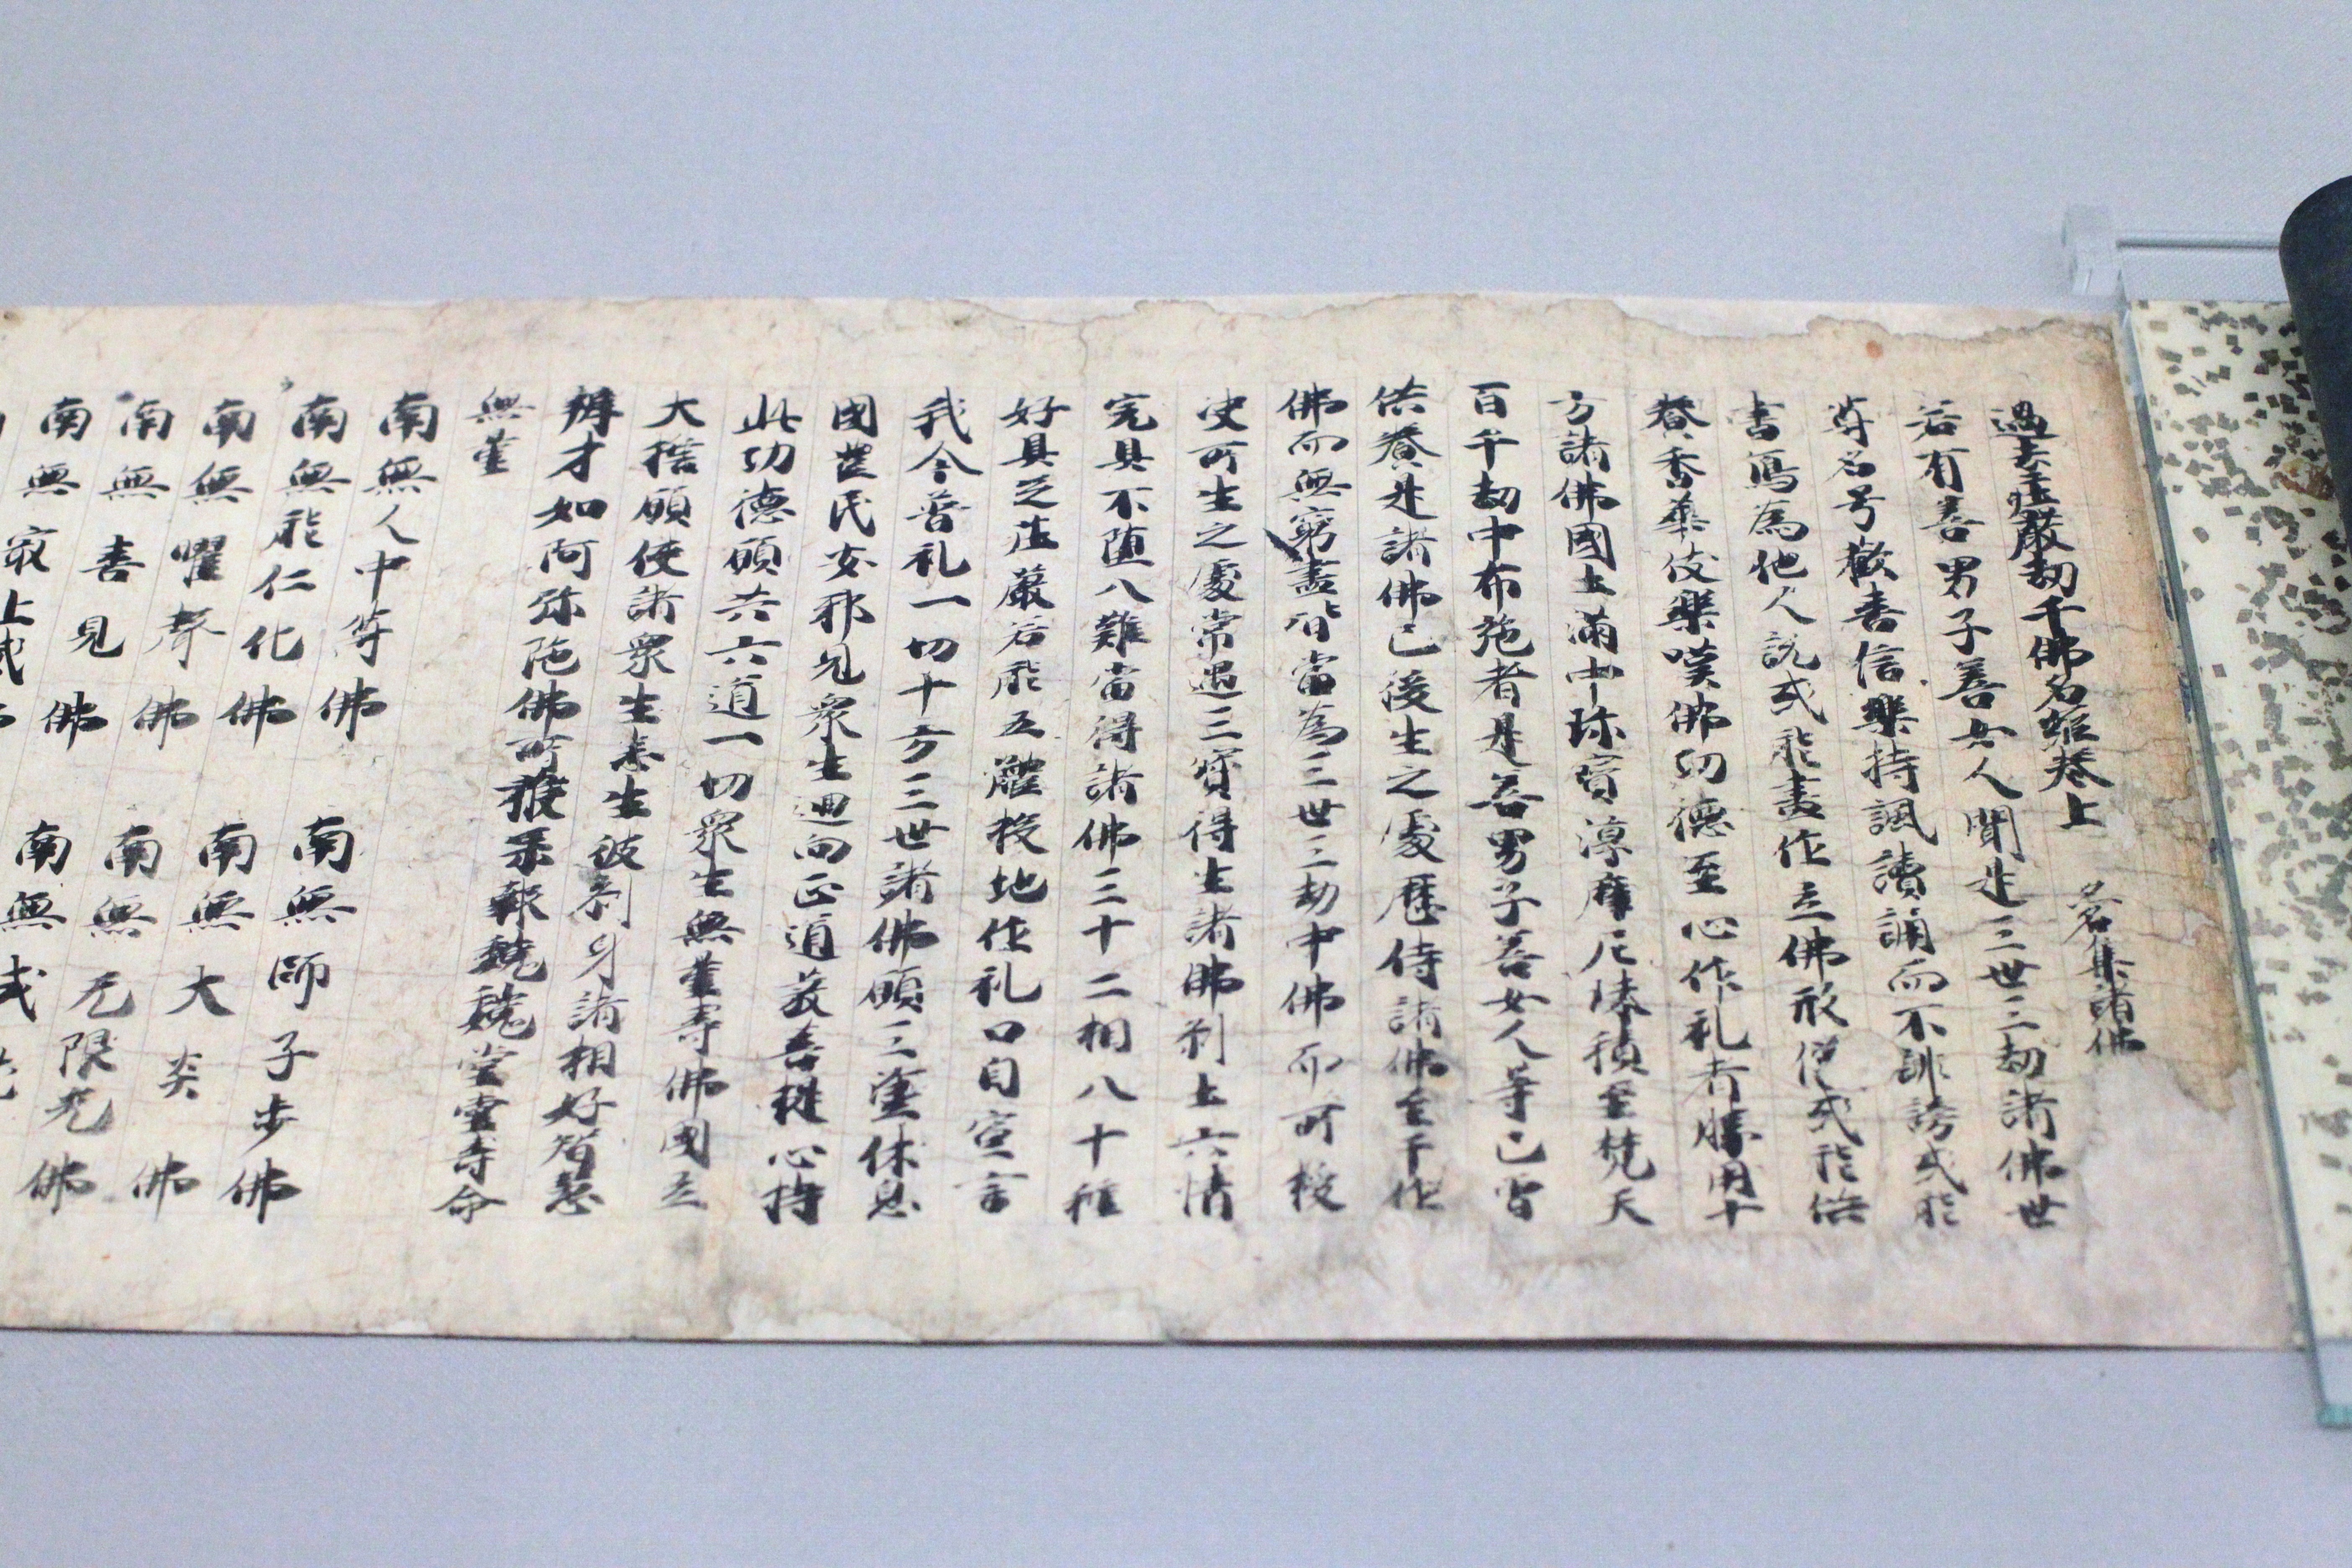 過去庄嚴劫千佛名經卷上 名集諸佛
若有善男子善女人聞是三世三劫諸佛世
尊名号歡喜信樂持諷讀誦而不誹謗或能
書寫為他人說或能畫作立佛形像或能供
養香華伎樂嘆佛功德至心作礼者勝用十
方諸佛國土滿中珎寶淳摩尼珠積至梵天
百千劫中布施者是善男子善女人等已曾
供養是諸佛已後生之處歷侍諸佛至于作
佛而無窮盡皆當為三世三劫中佛而所授
决所生之處常遇三寶得生諸佛剎土六情
完具不堕八難當得諸佛三十二相八十種
好具足庄嚴若能五體投地作礼口自宣言
我今普礼一切十方三世諸佛願三塗休息
國豊民安邪見眾生迴向正道發菩提心持
此功德願共六道一切眾生無量壽佛國立
大擔願使諸眾生悉生彼剎身諸相好智慧
辯才如阿弥陀佛所獲果報巍巍堂堂壽命
無量
南無人中尊佛 南無師子步佛
南無能仁化佛 南無大炎佛
南無曜聲佛 南無无限光佛
南無善見佛 南無
南無寂上